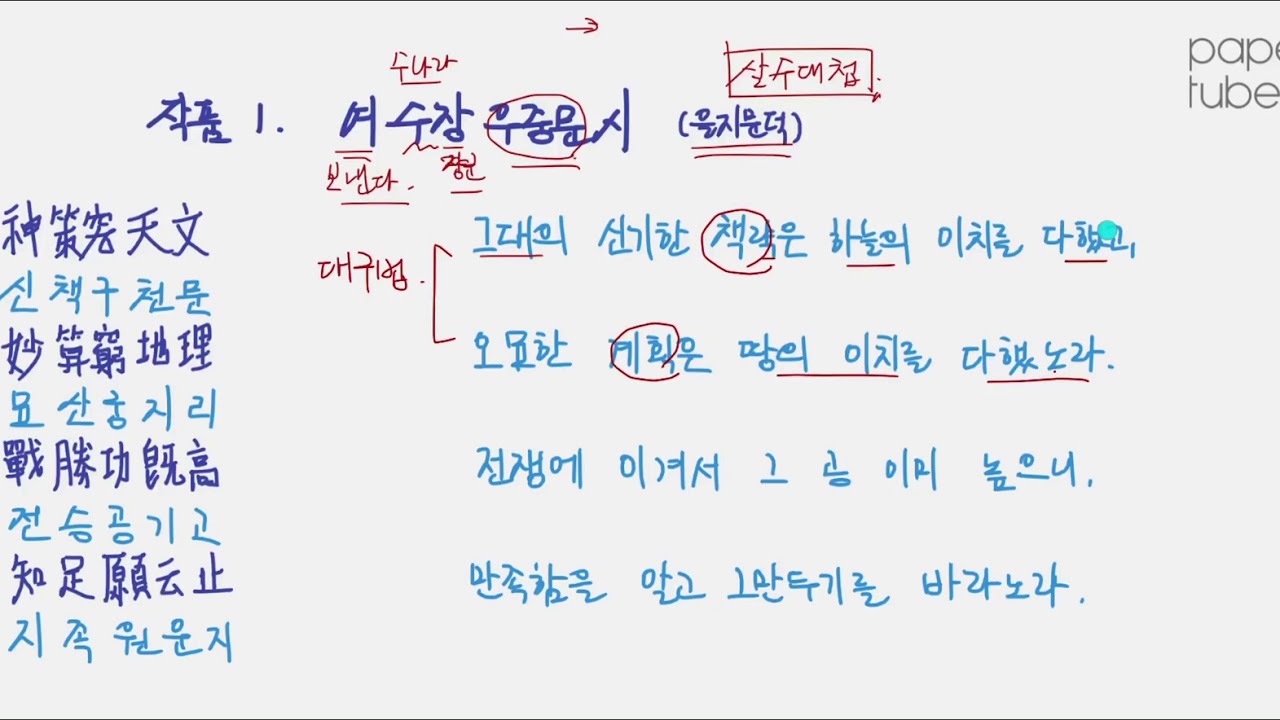 pape
tube
→
수나라
살수대첩.
작품 1. 여 수장 우중문 시 (을지문덕)
보낸다. 장군
神策究天文
그대의 신기한 책략은 하늘의 이치를 다했고,
대구법.
신책구천문
妙算窮地理
오묘한 계획은 땅의 이치를 다했노라.
묘산궁지리
戰勝功旣高
전쟁에 이겨서 그 공 이미 높으니,
전승공기고
知足願云止
만족함을 알고 그만두기를 바라노라.
지족원운지